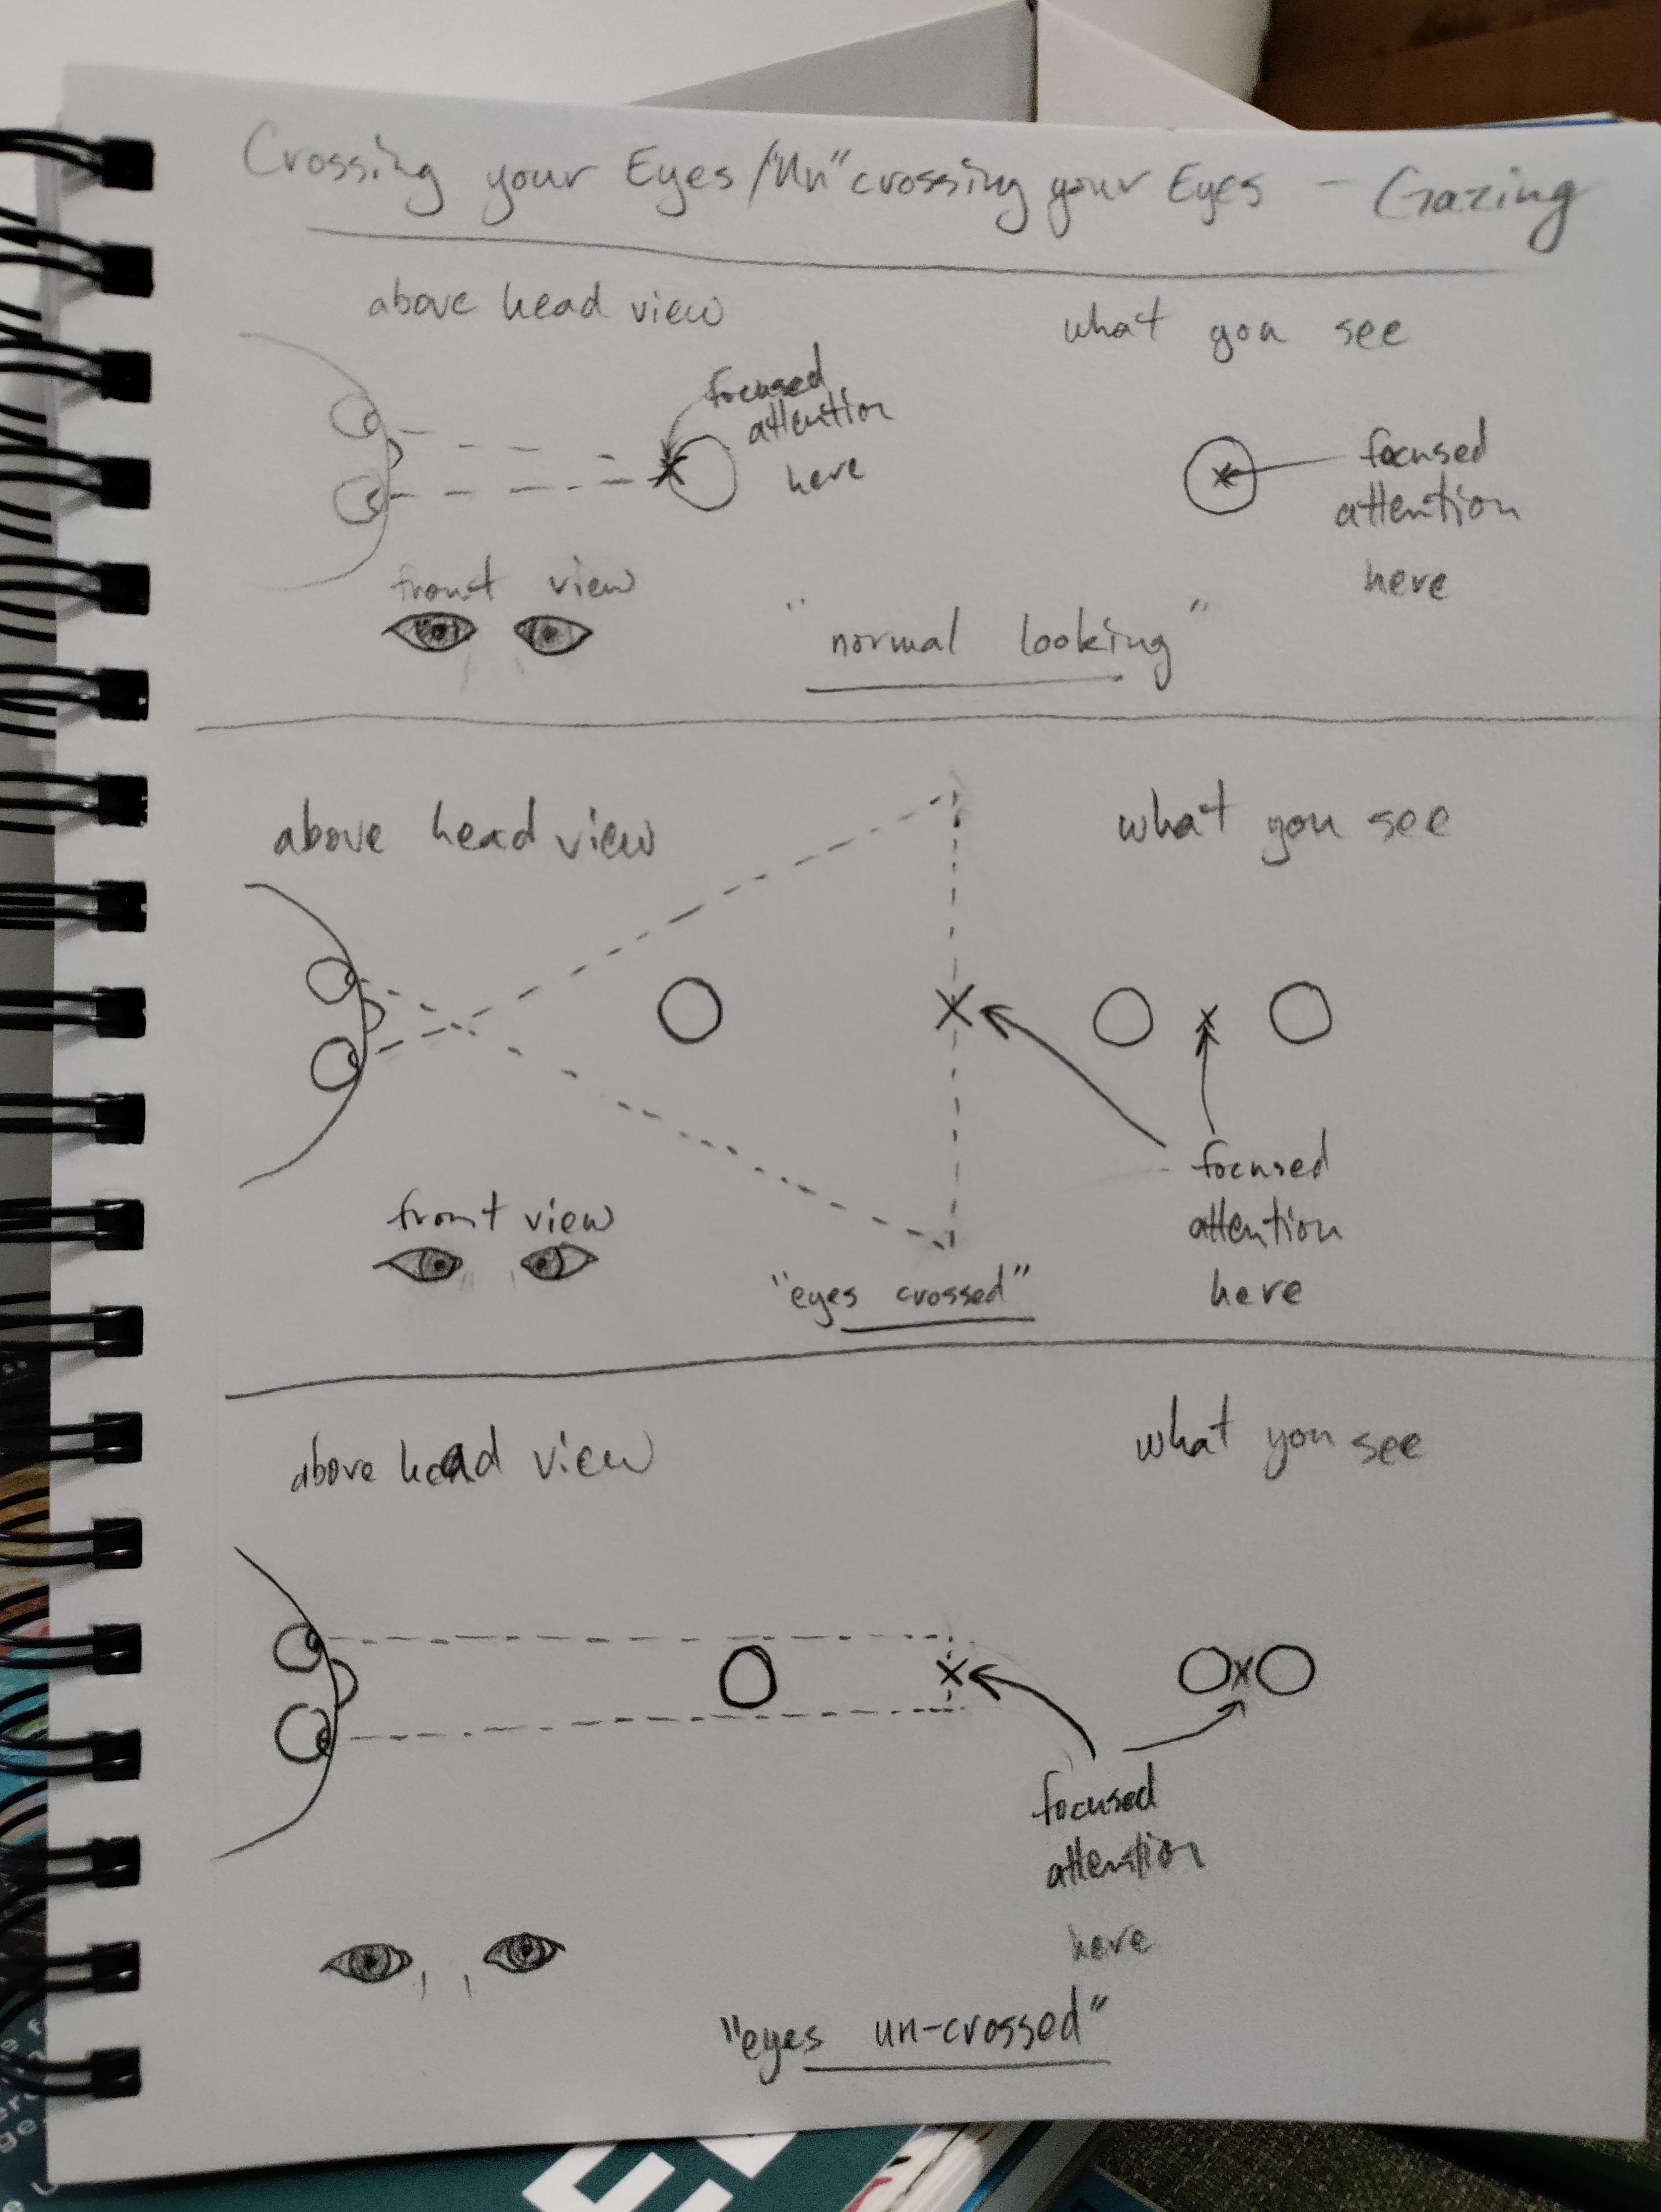 Crossing your Eyes/"Un"crossing your Eyes - Gazing
above head view
what you see
focused
attention
here
focused
attention
here
front view
"normal looking"
above head view
what you see
focused
attention
here
front view
"eyes crossed"
above head view
what you see
focused
attention
here
"eyes un-crossed"